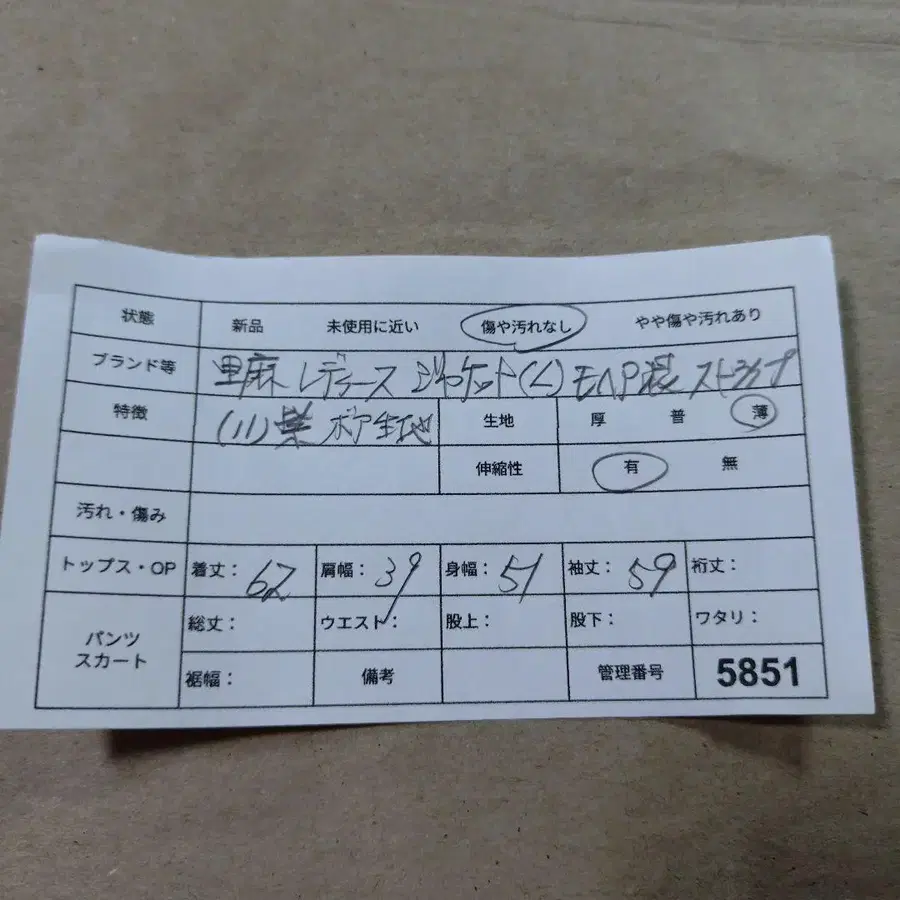 状態 新品 未使用に近い 傷や汚れなし やや傷や汚れあり
ブランド等 里麻 レディース ジャケット(L) 混
特徴 (11) ボア生地 生地 厚 普 薄
伸縮性 有 無
汚れ・傷み
トップス・OP 着丈: 62 肩幅: 39 身幅: 51 袖丈: 59 裄丈:
パンツ スカート 総丈: ウエスト: 股上: 股下: ワタリ:
裾幅: 備考 管理番号 5851